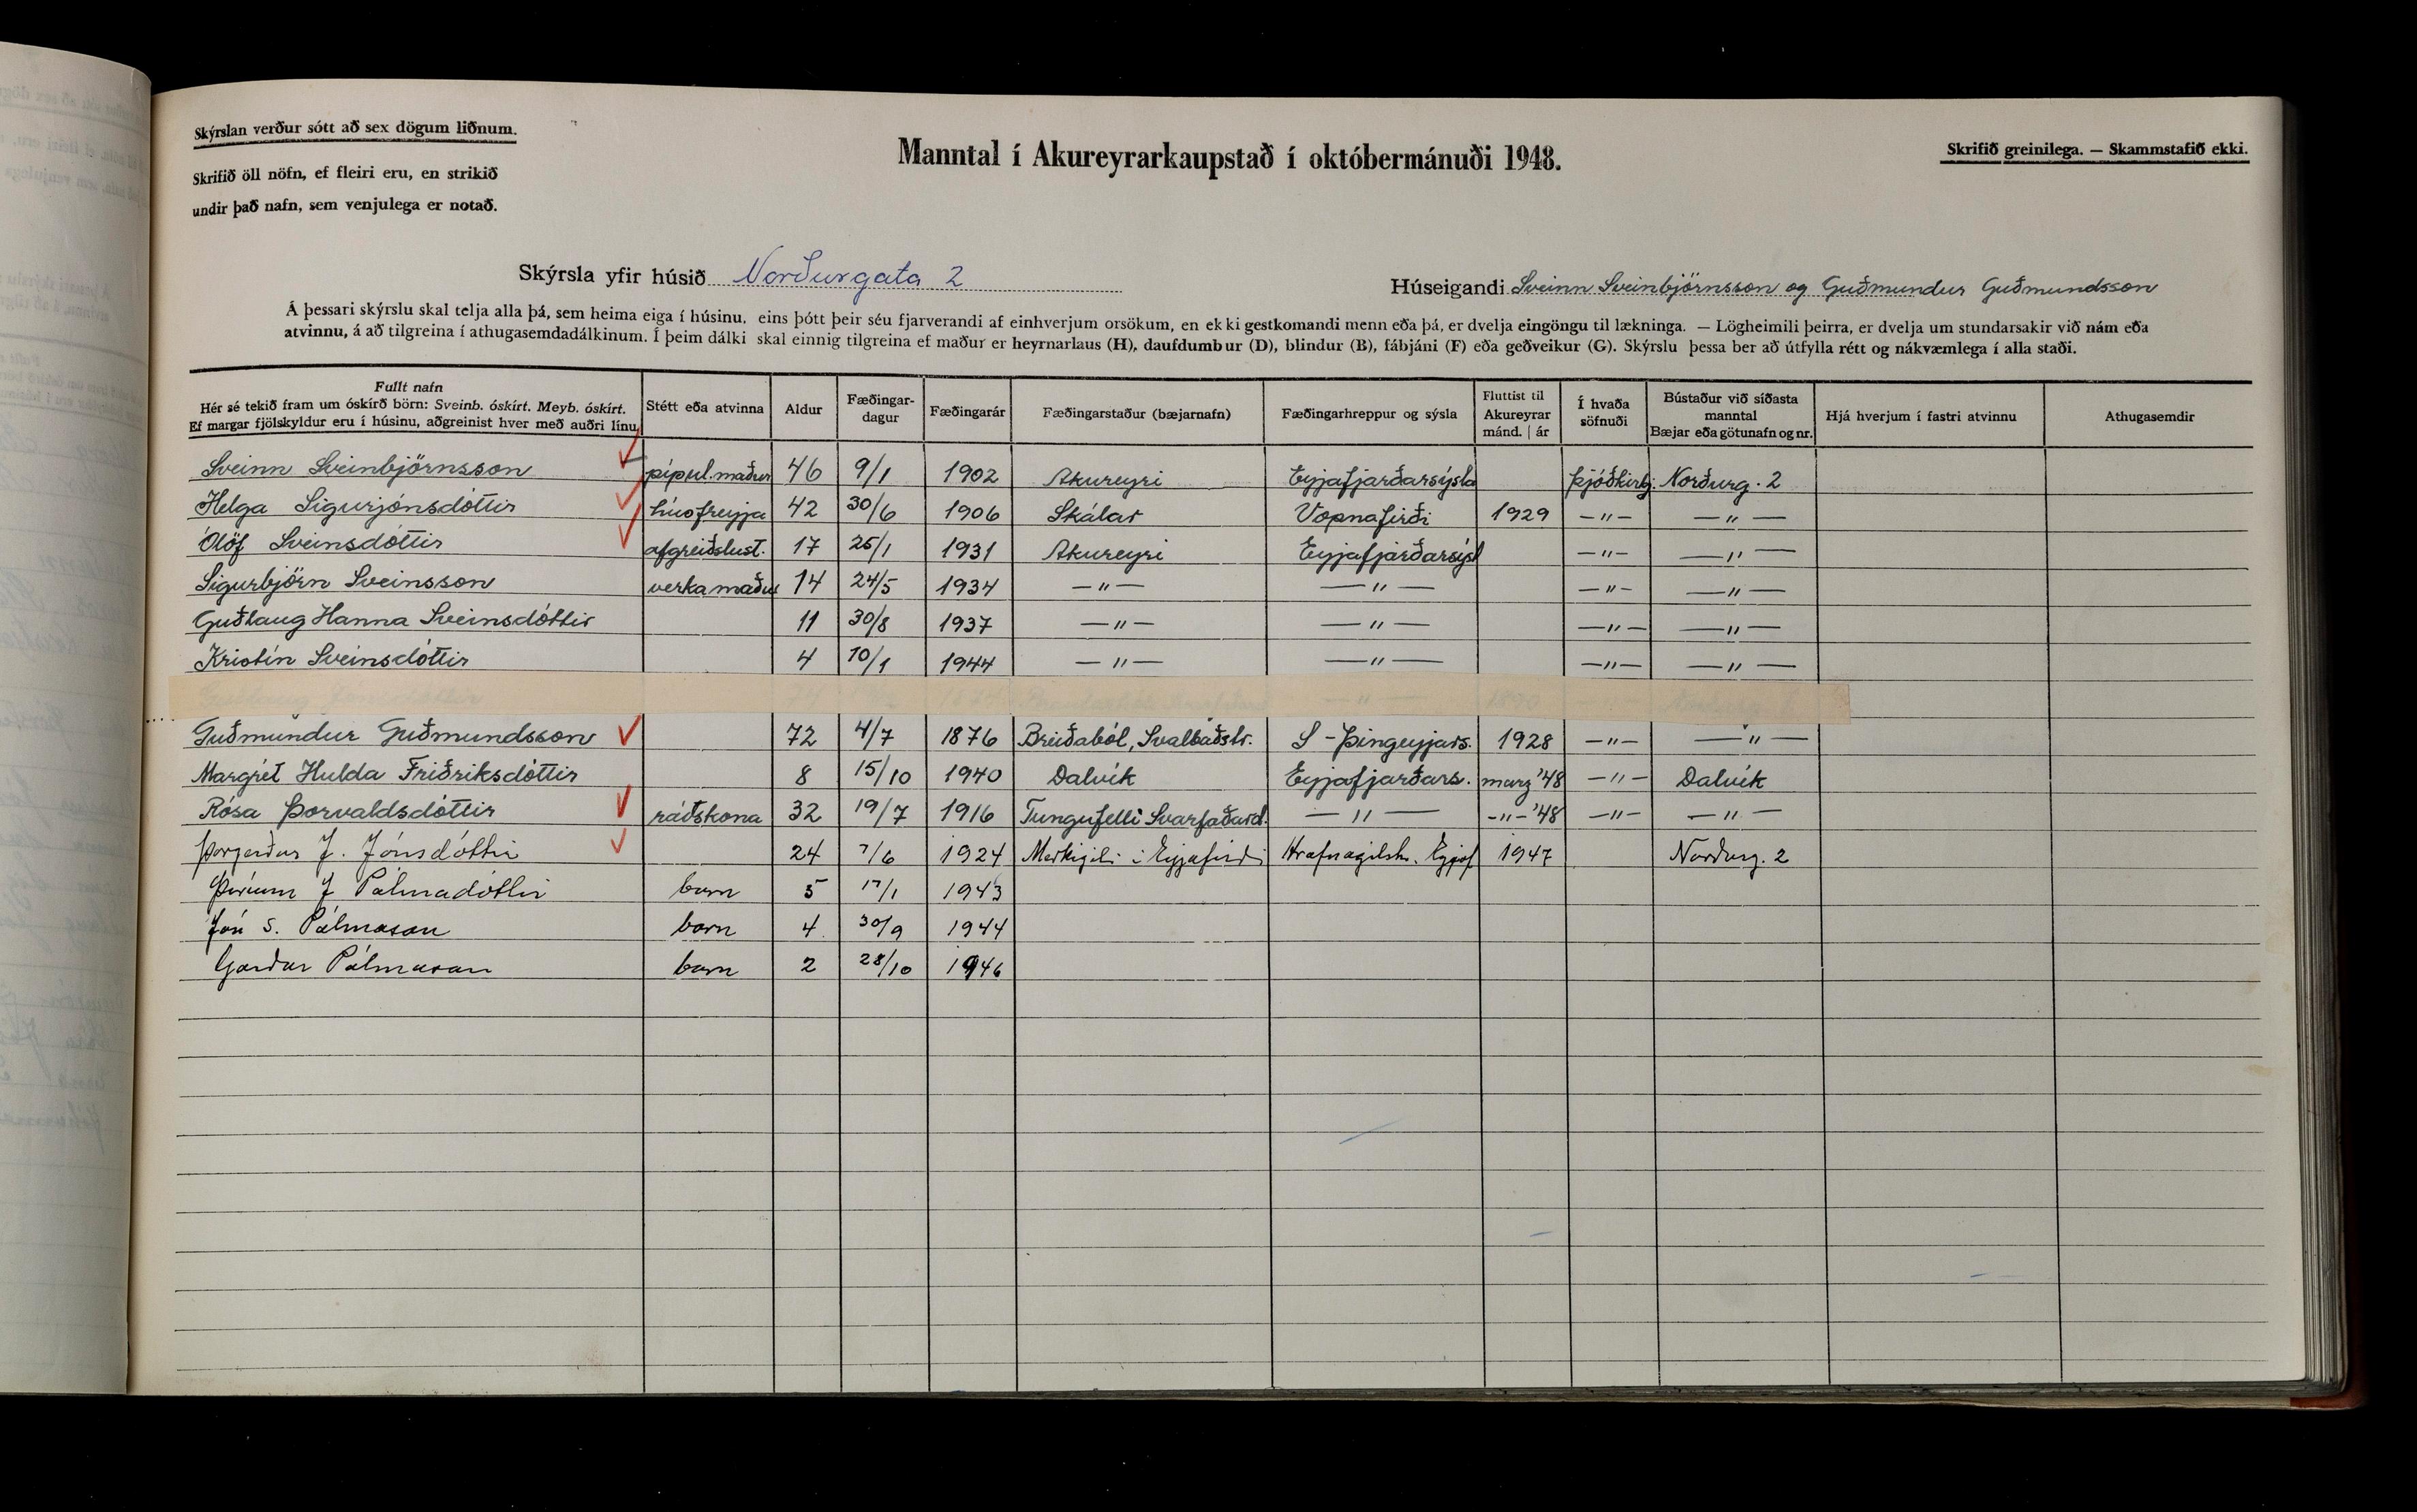 Skýrslan verður sótt að sex dögum liðnum.
Skrifið öll nöfn, ef fleiri eru, en strikið
undir það nafn, sem venjulega er notað.
Manntal í Akureyrarkaupstað í októbermánuði 1948.
Skrifið greinilega. — Skammstafið ekki.
Skýrsla yfir húsið Norðurgata 2
Húseigandi Sveinn Sveinbjörnsson og Guðmundur Guðmundsson
Á þessari skýrslu skal telja alla þá, sem heima eiga í húsinu, eins þótt þeir séu fjarverandi af einhverjum orsökum, en ekki gestkomandi menn eða þá, er dvelja eingöngu til lækninga. — Lögheimili þeirra, er dvelja um stundarsakir við nám eða
atvinnu, á að tilgreina í athugasemdadálkinum. Í þeim dálki skal einnig tilgreina ef maður er heyrnarlaus (H), daufdumbur (D), blindur (B), fábjáni (F) eða geðveikur (G). Skýrslu þessa ber að útfylla rétt og nákvæmlega í alla staði.
Fullt nafn
Hér sé tekið fram um óskírð börn: Sveinb. óskírt. Meyb. óskírt.
Ef margar fjölskyldur eru í húsinu, aðgreinist hver með auðri línu.
Stétt eða atvinna
Aldur
Fæðingar-
dagur
Fæðingarár
Fæðingarstaður (bæjarnafn)
Fæðingarhreppur og sýsla
Fluttist til
Akureyrar
mánd. | ár
Í hvaða
söfnuði
Bústaður við síðasta
manntal
Bæjar eða götunafn og nr.
Hjá hverjum í fastri atvinnu
Athugasemdir
Sveinn Sveinbjörnsson pípul.maður 46 9/1 1902 Akureyri Eyjafjarðarsýsla Þjóðkirkj. Norðurg. 2
Helga Sigurjónsdóttir húsfreyja 42 30/6 1906 Skálar Vopnafirði 1929 —"— —"—
Ólöf Sveinsdóttir afgreiðslust. 17 25/1 1931 Akureyri Eyjafjarðarsýsl —"— —"—
Sigurbjörn Sveinsson verkamaður 14 24/5 1934 —"— —"— —"— —"—
Guðlaug Hanna Sveinsdóttir 11 30/8 1937 —"— —"— —"— —"—
Kristín Sveinsdóttir 4 10/1 1944 —"— —"— —"— —"—
Guðmundur Guðmundsson 72 4/7 1876 Breiðaból, Svalbaðstr. S-Þingeyjars. 1928 —"— —"—
Margrét Hulda Friðriksdóttir 8 15/10 1940 Dalvík Eyjafjarðars. marz '48 —"— Dalvík
Rósa Þorvaldsdóttir ráðskona 32 19/7 1916 Tungufelli Svarfaðard. —"— -"- '48 —"— —"—
Þorgerður J. Jónsdóttir 24 7/6 1924 Merkigili í Eyjafirði Hrafnagilshr. Eyjaf 1947 Norðurg. 2
J Pálmadóttir barn 5 17/1 1943
Jón S. Pálmason barn 4 30/9 1944
Garðar Pálmason barn 2 28/10 1946